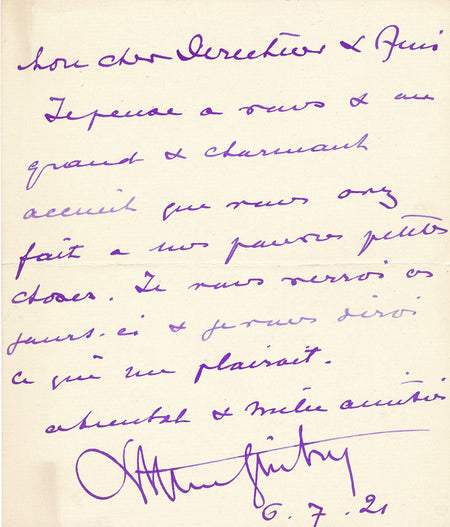 Mon cher Directeur & Ami
Je pense a vous & au
grand & charmant
accueil que vous avez
fait a mes pauvres petites
choses. Je vous verrai ces
jours-ci & je vous dirai
ce qui me plairait.
a bientot & mille amitiés
6.7.21